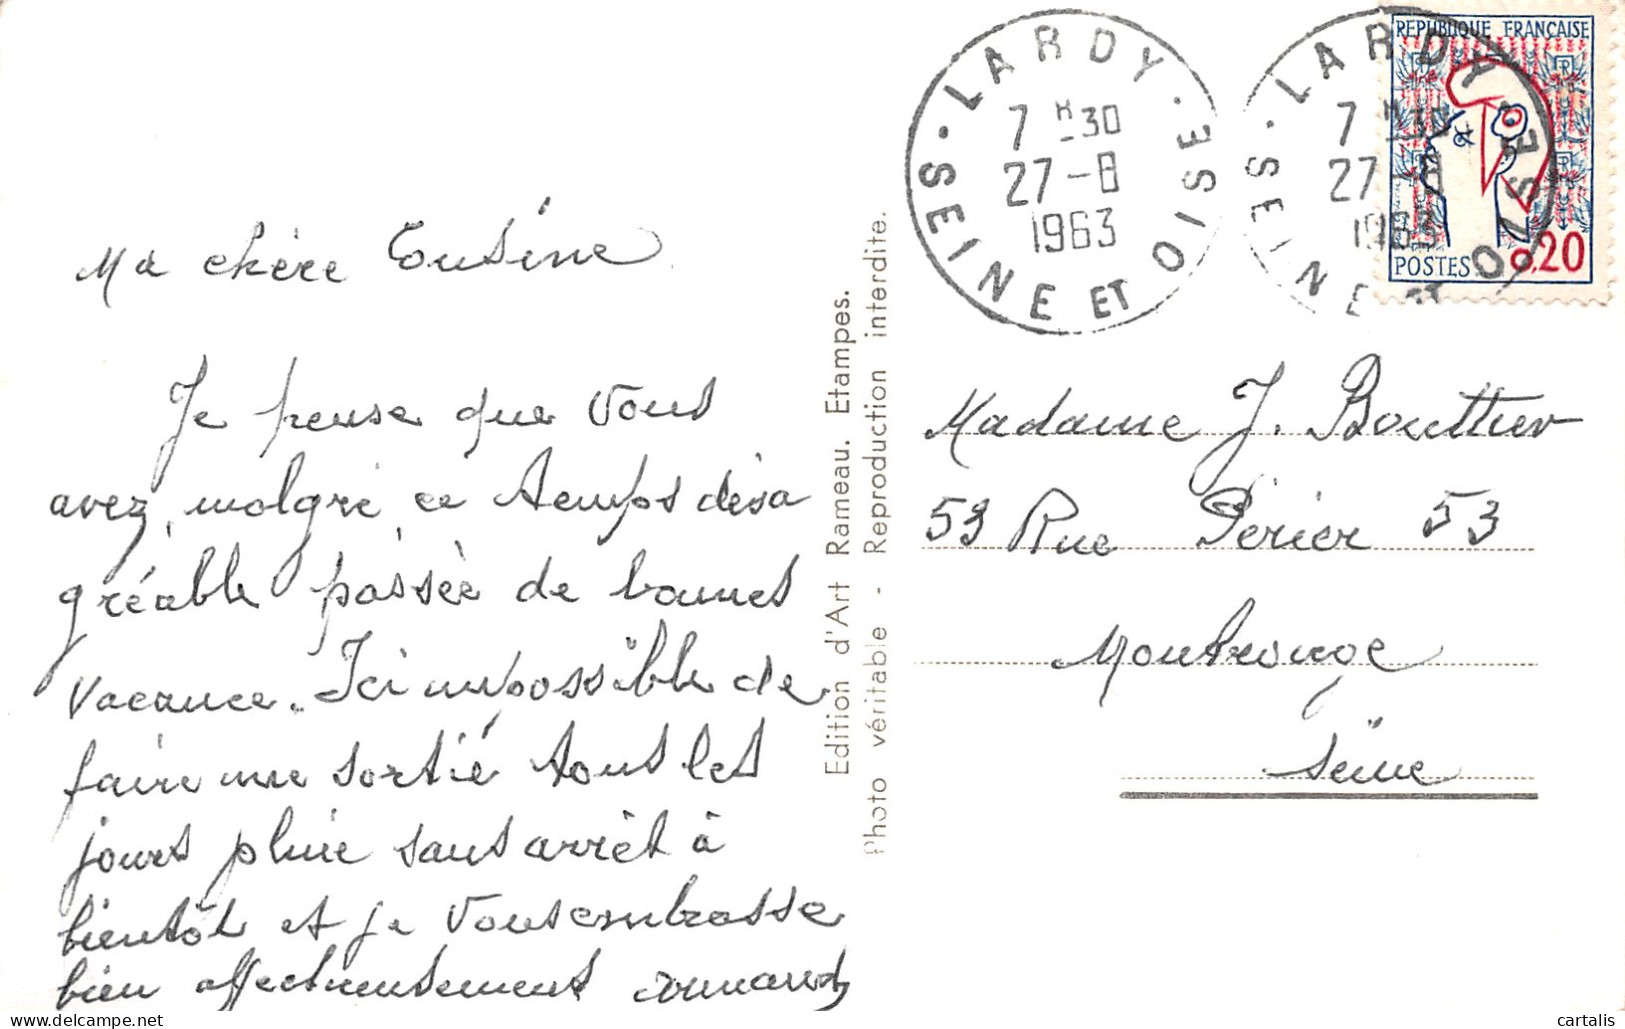 Ma chère Cousine
Je pense que vous
avez, malgré ce temps désa
gréable passée de bonnes
vacance. Ici impossible de
faire une sortie tous les
jours pluie sans arrêt à
bientôt et je vous embrasse
bien affectueusement
Edition d'Art Rameau. Etampes.
Photo véritable - Reproduction interdite.
LARDY
7 H 30
27-8
1963
SEINE ET OISE
LARDY
7 H 30
27-8
1963
SEINE ET OISE
REPUBLIQUE FRANÇAISE
POSTES 0,20
Madame J. Bouttier
53 Rue Périer 53
Montrouge
Seine
cartalis